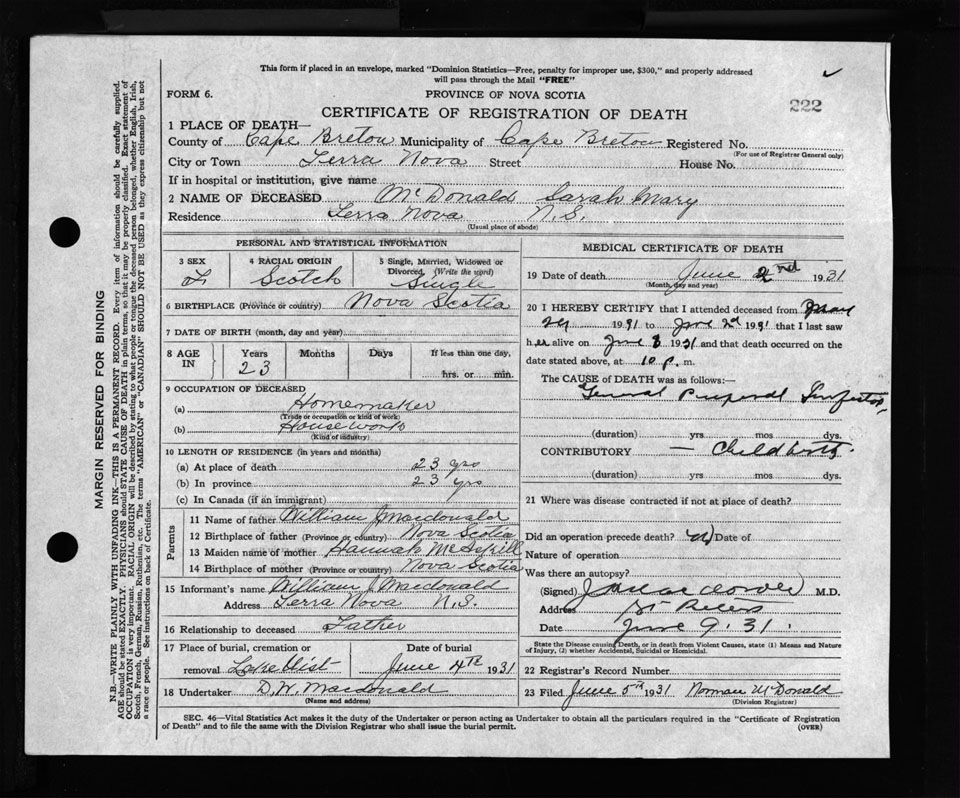 This form if placed in an envelope, marked "Dominion Statistics—Free, penalty for improper use, $300," and properly addressed
will pass through the Mail "FREE"
FORM 6.
PROVINCE OF NOVA SCOTIA
222
CERTIFICATE OF REGISTRATION OF DEATH
1 PLACE OF DEATH—
County of Cape Breton Municipality of Cape Breton Registered No.
(For use of Registrar General only)
City or Town Terra Nova Street House No.
If in hospital or institution, give name
2 NAME OF DECEASED McDonald Sarah Mary
Residence Terra Nova N.S.
(Usual place of abode)
PERSONAL AND STATISTICAL INFORMATION
3 SEX 4 RACIAL ORIGIN 5 Single, Married, Widowed or
Divorced (Write the word)
F Scotch Single
6 BIRTHPLACE (Province or country) Nova Scotia
7 DATE OF BIRTH (month, day and year)
8 AGE IN Years Months Days If less than one day,
23 hrs. or min.
9 OCCUPATION OF DECEASED
(a) Homemaker
(Trade or occupation or kind of work)
(b) Housework
(Kind of industry)
10 LENGTH OF RESIDENCE (in years and months)
(a) At place of death 23 yrs
(b) In province 23 yrs
(c) In Canada (if an immigrant)
Parents
11 Name of father William J Macdonald
12 Birthplace of father (Province or country) Nova Scotia
13 Maiden name of mother Hannah
14 Birthplace of mother (Province or country) Nova Scotia
15 Informant's name William J Macdonald
Address Terra Nova N.S.
16 Relationship to deceased Father
17 Place of burial, cremation or Date of burial
removal June 4th 1931
18 Undertaker D. W. Macdonald
(Name and address)
MEDICAL CERTIFICATE OF DEATH
19 Date of death June 2nd 1931
(Month, day and year)
20 I HEREBY CERTIFY that I attended deceased from
29 1931 to June 2d 1931 that I last saw
her alive on June 1931 and that death occurred on the
date stated above, at 10 p. m.
The CAUSE of DEATH was as follows:—
General Puerperal Infection,
(duration) yrs mos dys.
CONTRIBUTORY — Childbirth
(duration) yrs mos dys.
21 Where was disease contracted if not at place of death?
Did an operation precede death? no Date of
Nature of operation
Was there an autopsy?
(Signed) M.D.
Address St Peters
Date June 9. 31.
State the Disease causing Death, or in death from Violent Causes, state (1) Means and Nature
of Injury, (2) whether Accidental, Suicidal or Homicidal.
22 Registrar's Record Number
23 Filed June 5th 1931 Norman McDonald
(Division Registrar)
SEC. 46—Vital Statistics Act makes it the duty of the Undertaker or person acting as Undertaker to obtain all the particulars required in the "Certificate of Registration
of Death" and to file the same with the Division Registrar who shall issue the burial permit.
(OVER)
MARGIN RESERVED FOR BINDING
N.B.—WRITE PLAINLY WITH UNFADING INK—THIS IS A PERMANENT RECORD. Every item of information should be carefully supplied.
AGE should be stated EXACTLY. PHYSICIANS should STATE CAUSE OF DEATH in plain terms, so that it may be properly classified. Exact statement of
OCCUPATION is very important. RACIAL ORIGIN will be described by stating to what people or tongue the deceased person belonged, whether English, Irish,
Scotch, French, German, Russian, Ruthenian, etc. The terms "AMERICAN" or "CANADIAN" SHOULD NOT BE USED as they express citizenship but not
a race or people. See instructions on back of Certificate.